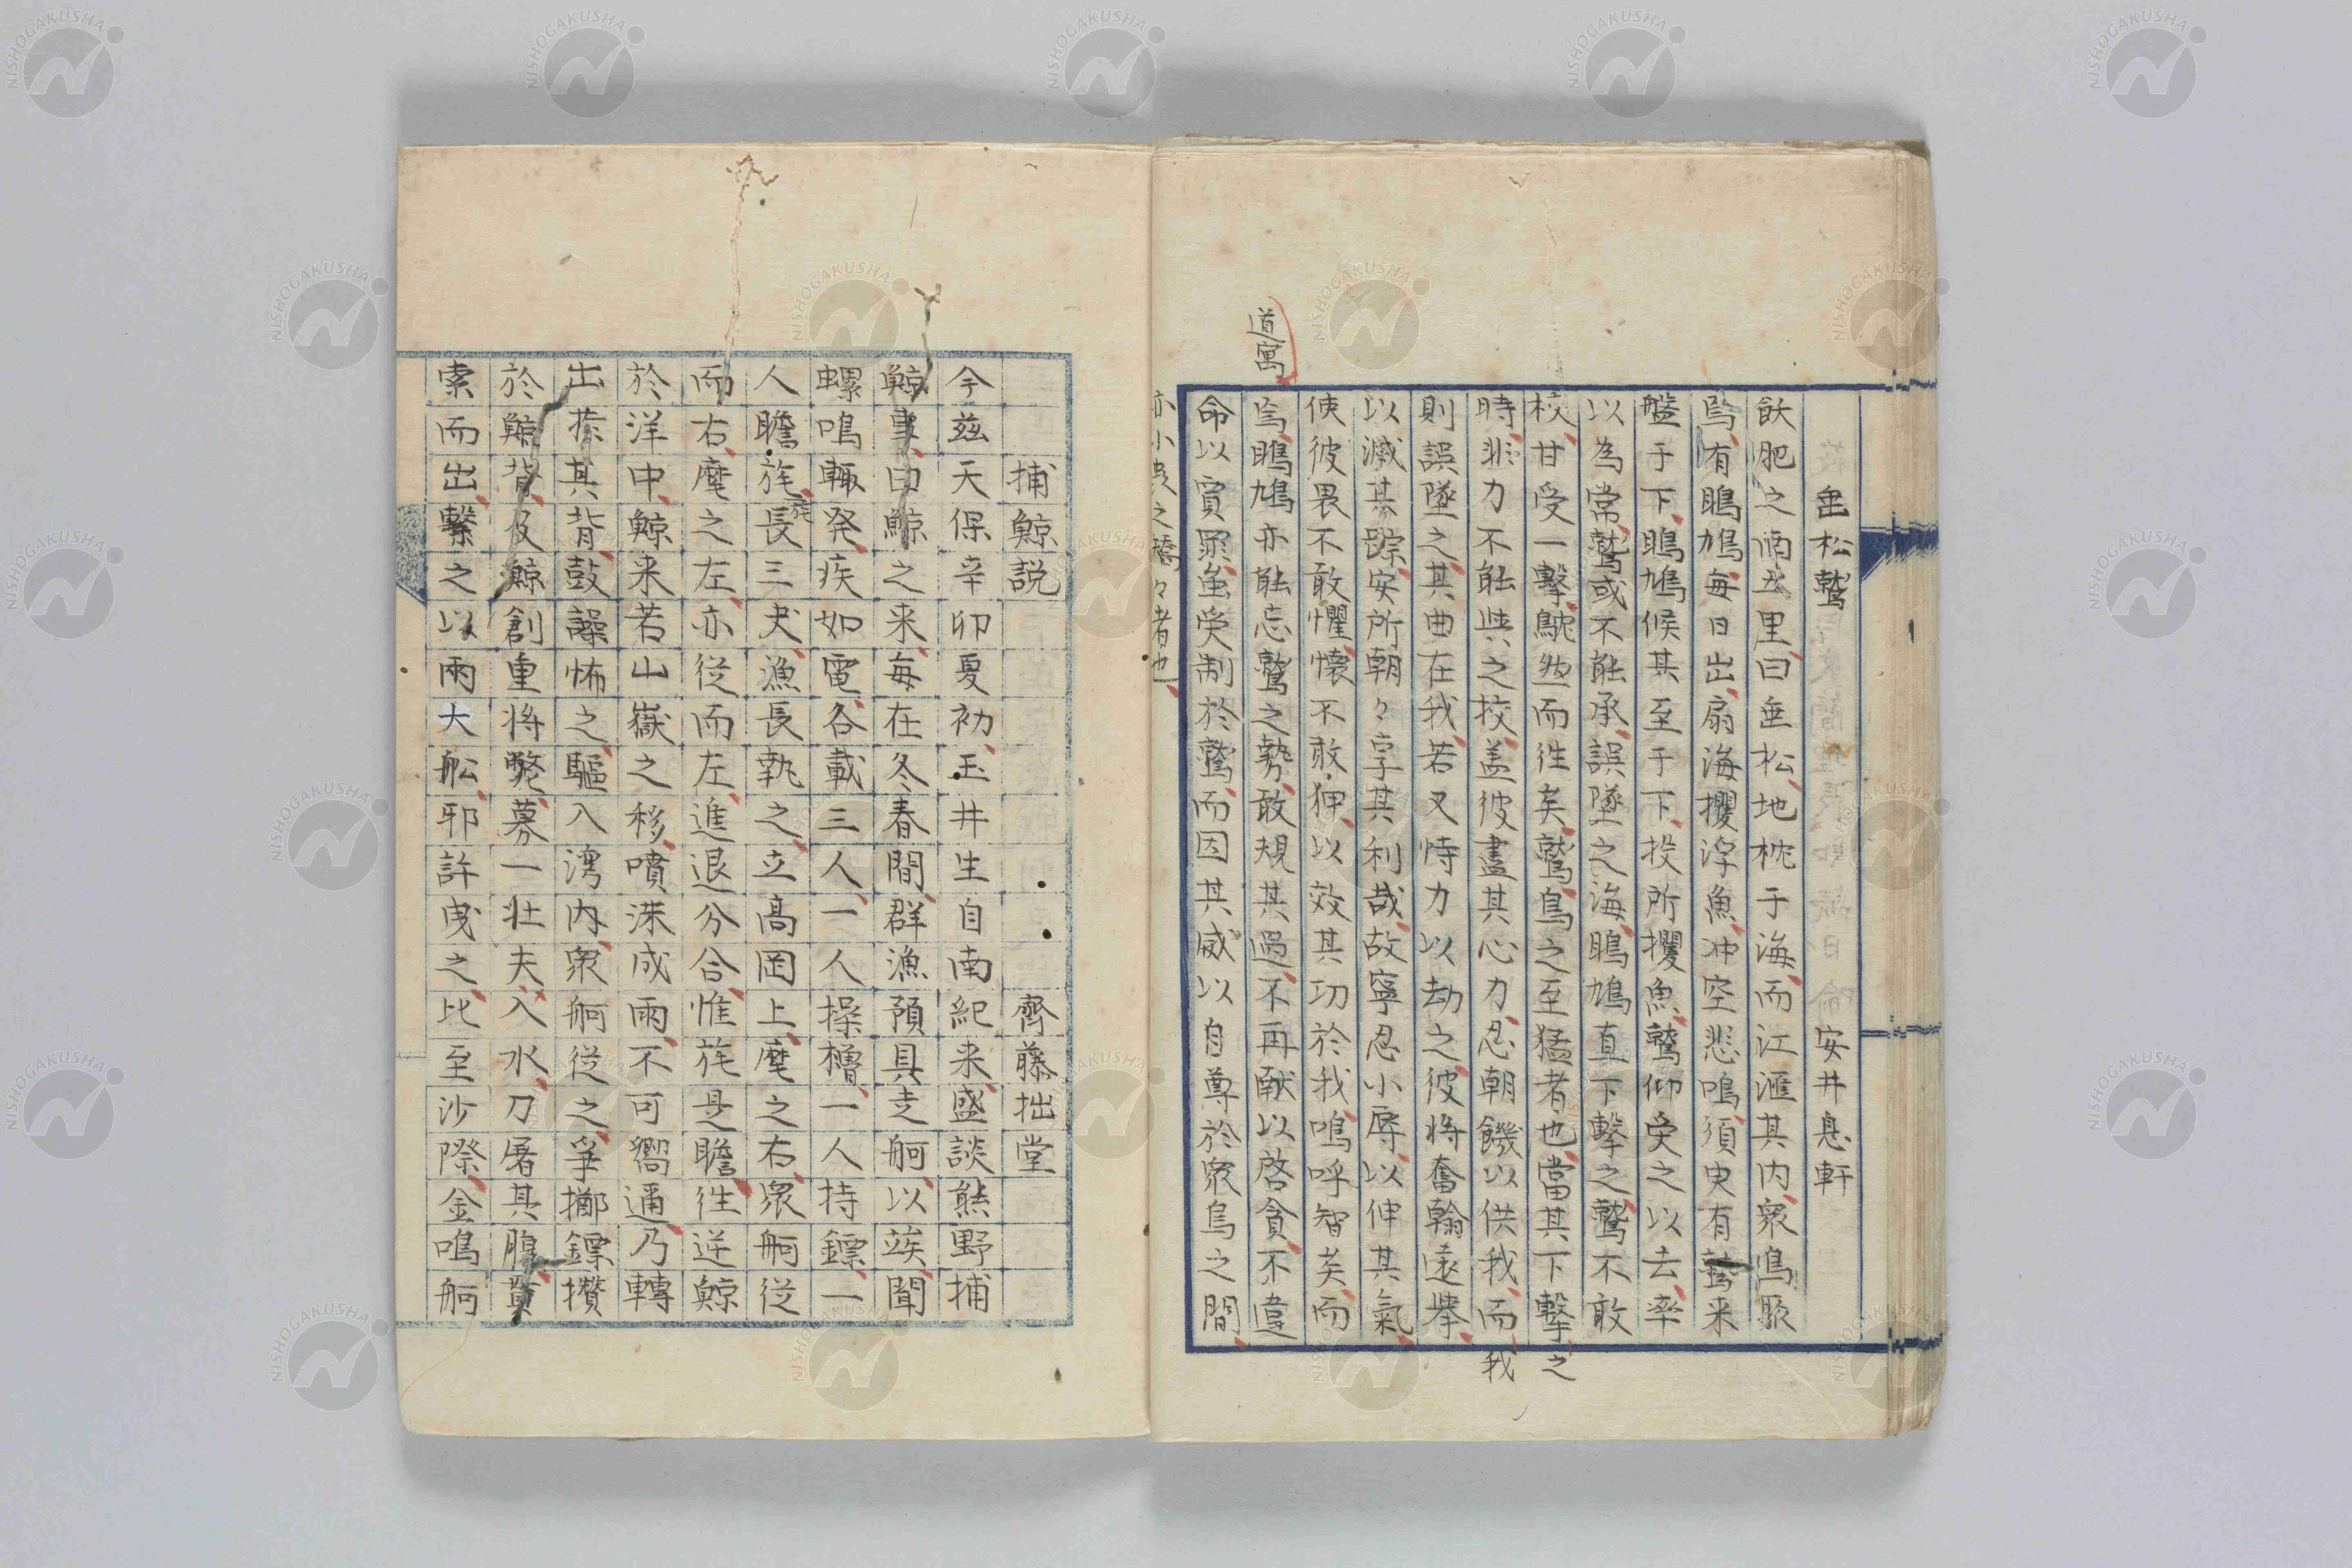 垂松鷲 安井息軒
飫肥之南五里曰垂松地枕于海而江滙其内衆鳥聚
焉有鵰鳩毎日出扇海攫浮魚冲空悲鳴須臾有鷲来
盤于下鵰鳩候其至于下投所攫魚鷲仰受之以去率
以為常鷲或不能承誤墜之海鵰鳩直下撃之鷲不敢
校甘受一撃 然而徃矣鷲鳥之至猛者也當其下撃之
時非力不能與之校盖彼盡其心力忍朝饑以供我而我
則誤墜之其曲在我若又恃力以劫之彼将奮翰遠擧
以滅其踪安所朝々享其利哉故寧忍小辱以伸其氣
使彼畏不敢懼懐不敢狎以效其功於我嗚呼智矣而
道寓
焉鵰鳩亦能忘鷲之勢敢規其過不再献以啓貪不違
命以賈罪虽受制於鷲而因其威以自尊於衆鳥之間
亦小 之矯々者也
捕鯨説 齊藤拙堂
今兹天保辛卯夏初玉井生自南紀来盛談熊野捕
鯨事曰鯨之来毎在冬春間群漁預具走舸以竢聞
螺鳴輙発疾如電各載三人一人操櫓一人持鏢一
人瞻旄長三丈漁長執之立高岡上麾之右衆舸従
而右麾之左亦従而左進退分合惟旄是瞻徃逆鯨
於洋中鯨来若山嶽之移噴渫成雨不可嚮邇乃轉
出其背鼓譟怖之驅入湾内衆舸従之爭擲鏢攢
於鯨背及鯨創重将斃募一壮夫入水刀屠其腸貫
索而出繋之以兩大舩邪許曳之比至沙際金鳴舸